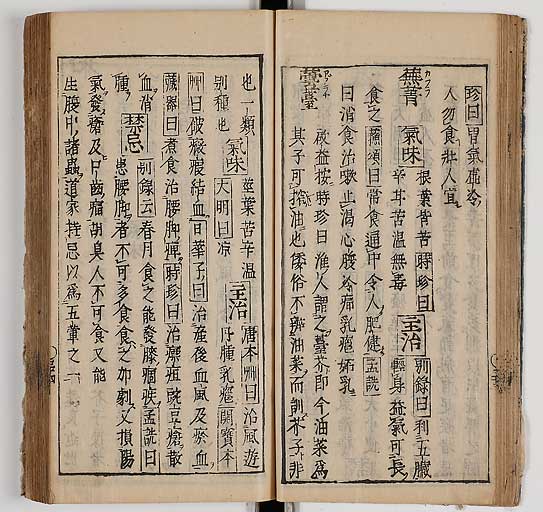 珍曰胃氣虛冷
人勿食非人宜
蕪菁 カブラ 氣味 根葉皆苦時珍曰
辛甘苦溫無毒 主治 別錄曰利五臟
輕身益氣可長
食之蘇頌曰常食通中令人肥健孟詵
曰消食治嗽止渴心腹冷痛乳癰妬乳
蕓薹 アブラナ 啟益按時珍曰淮人謂之薹芥即今油菜爲
其子可搾油也倭俗不辨油菜而訓芥子非
也一類
別種也 氣味 莖葉苦辛溫
大明曰涼 主治 唐本艸曰治風遊
丹腫乳癰開寶本
艸曰破癥瘕結血日華子曰治產後血風及瘀血
藏器曰煮食治腰脚痺時珍曰治瘭疽豌豆瘡散
血消
腫 禁忌 別錄云春月食之能發膝痼疾孟詵曰
患腰脚者不可多食食之加劇又損陽
氣發瘡及口齒痛胡臭人不可食又能
生腹中諸蟲道家持忌以爲五葷之一